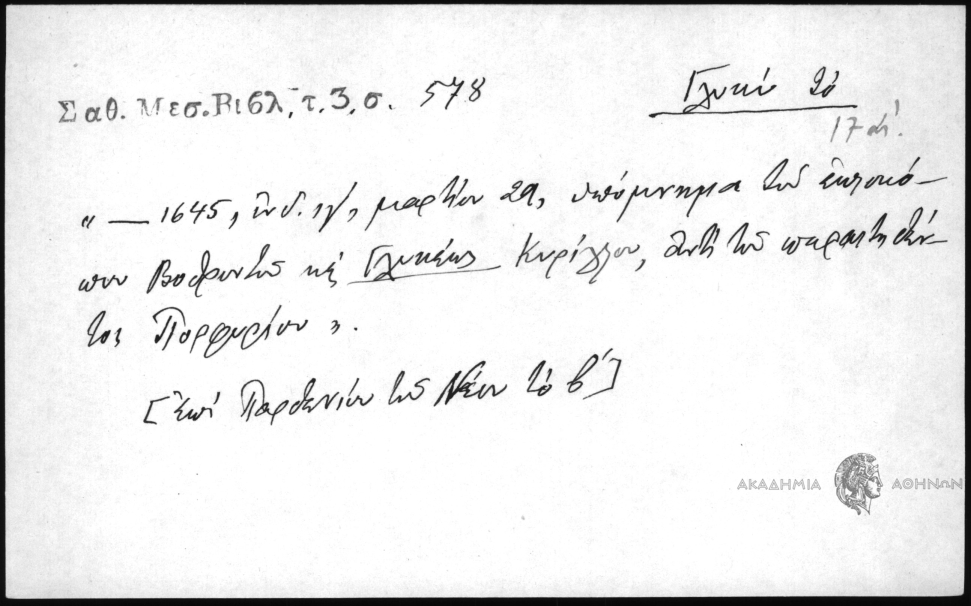 Σαθ. Μεσ. Βιβλ, τ. 3, σ. 578
Γλυκύ τό
17 αἰ.
" — 1645, ἰνδ. ιγ', μαρτίου 29, ὑπόμνημα τοῦ ἐπισκό-
που Βοθροντοῦ κὲ Γλυκέως Κυρίλλου, ἀντὶ τοῦ παραιτηθέν-
τος Πορφυρίου ".
[Ἐπὶ Παρθενίου τοῦ Νέου τὸ β']
ΑΚΑΔΗΜΙΑ ΑΘΗΝΩΝ